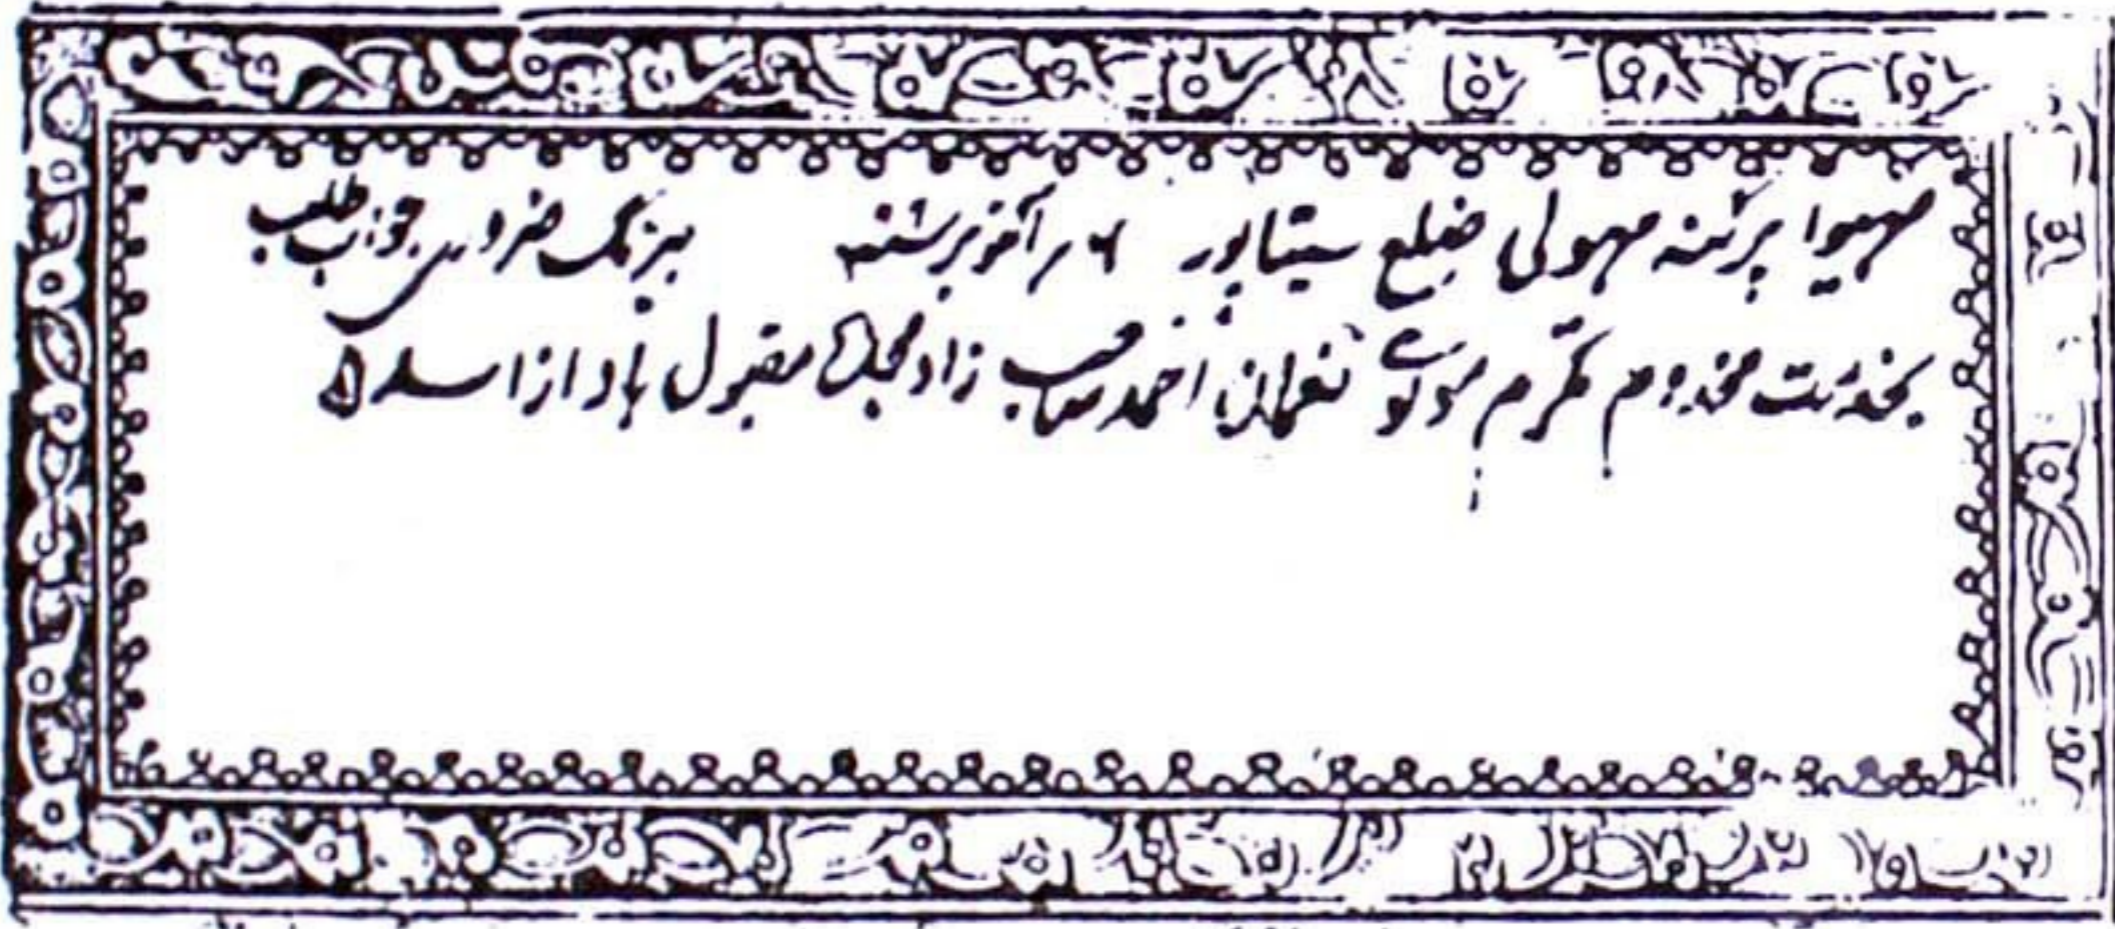 سہیوا پرگنہ مہولی ضلع سیتاپور ۶ ر اکتوبر شنبہ بیرنگ ضروری جواب طلب
بخدمت مخدوم مکرم مولوی نعمان احمد صاحب زاد مجدہ مقبول باد از اسد ۵